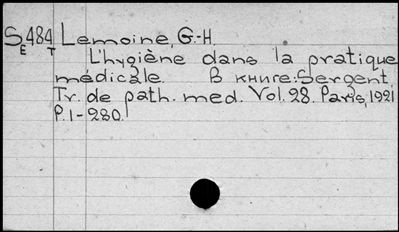 S484 Lemoine, G.-H
E T
L'hygiène dans la pratique
médicale. В книге: Sergent,
Tr. de path. med. Vol. 28. Paris, 1921
P. 1-280.